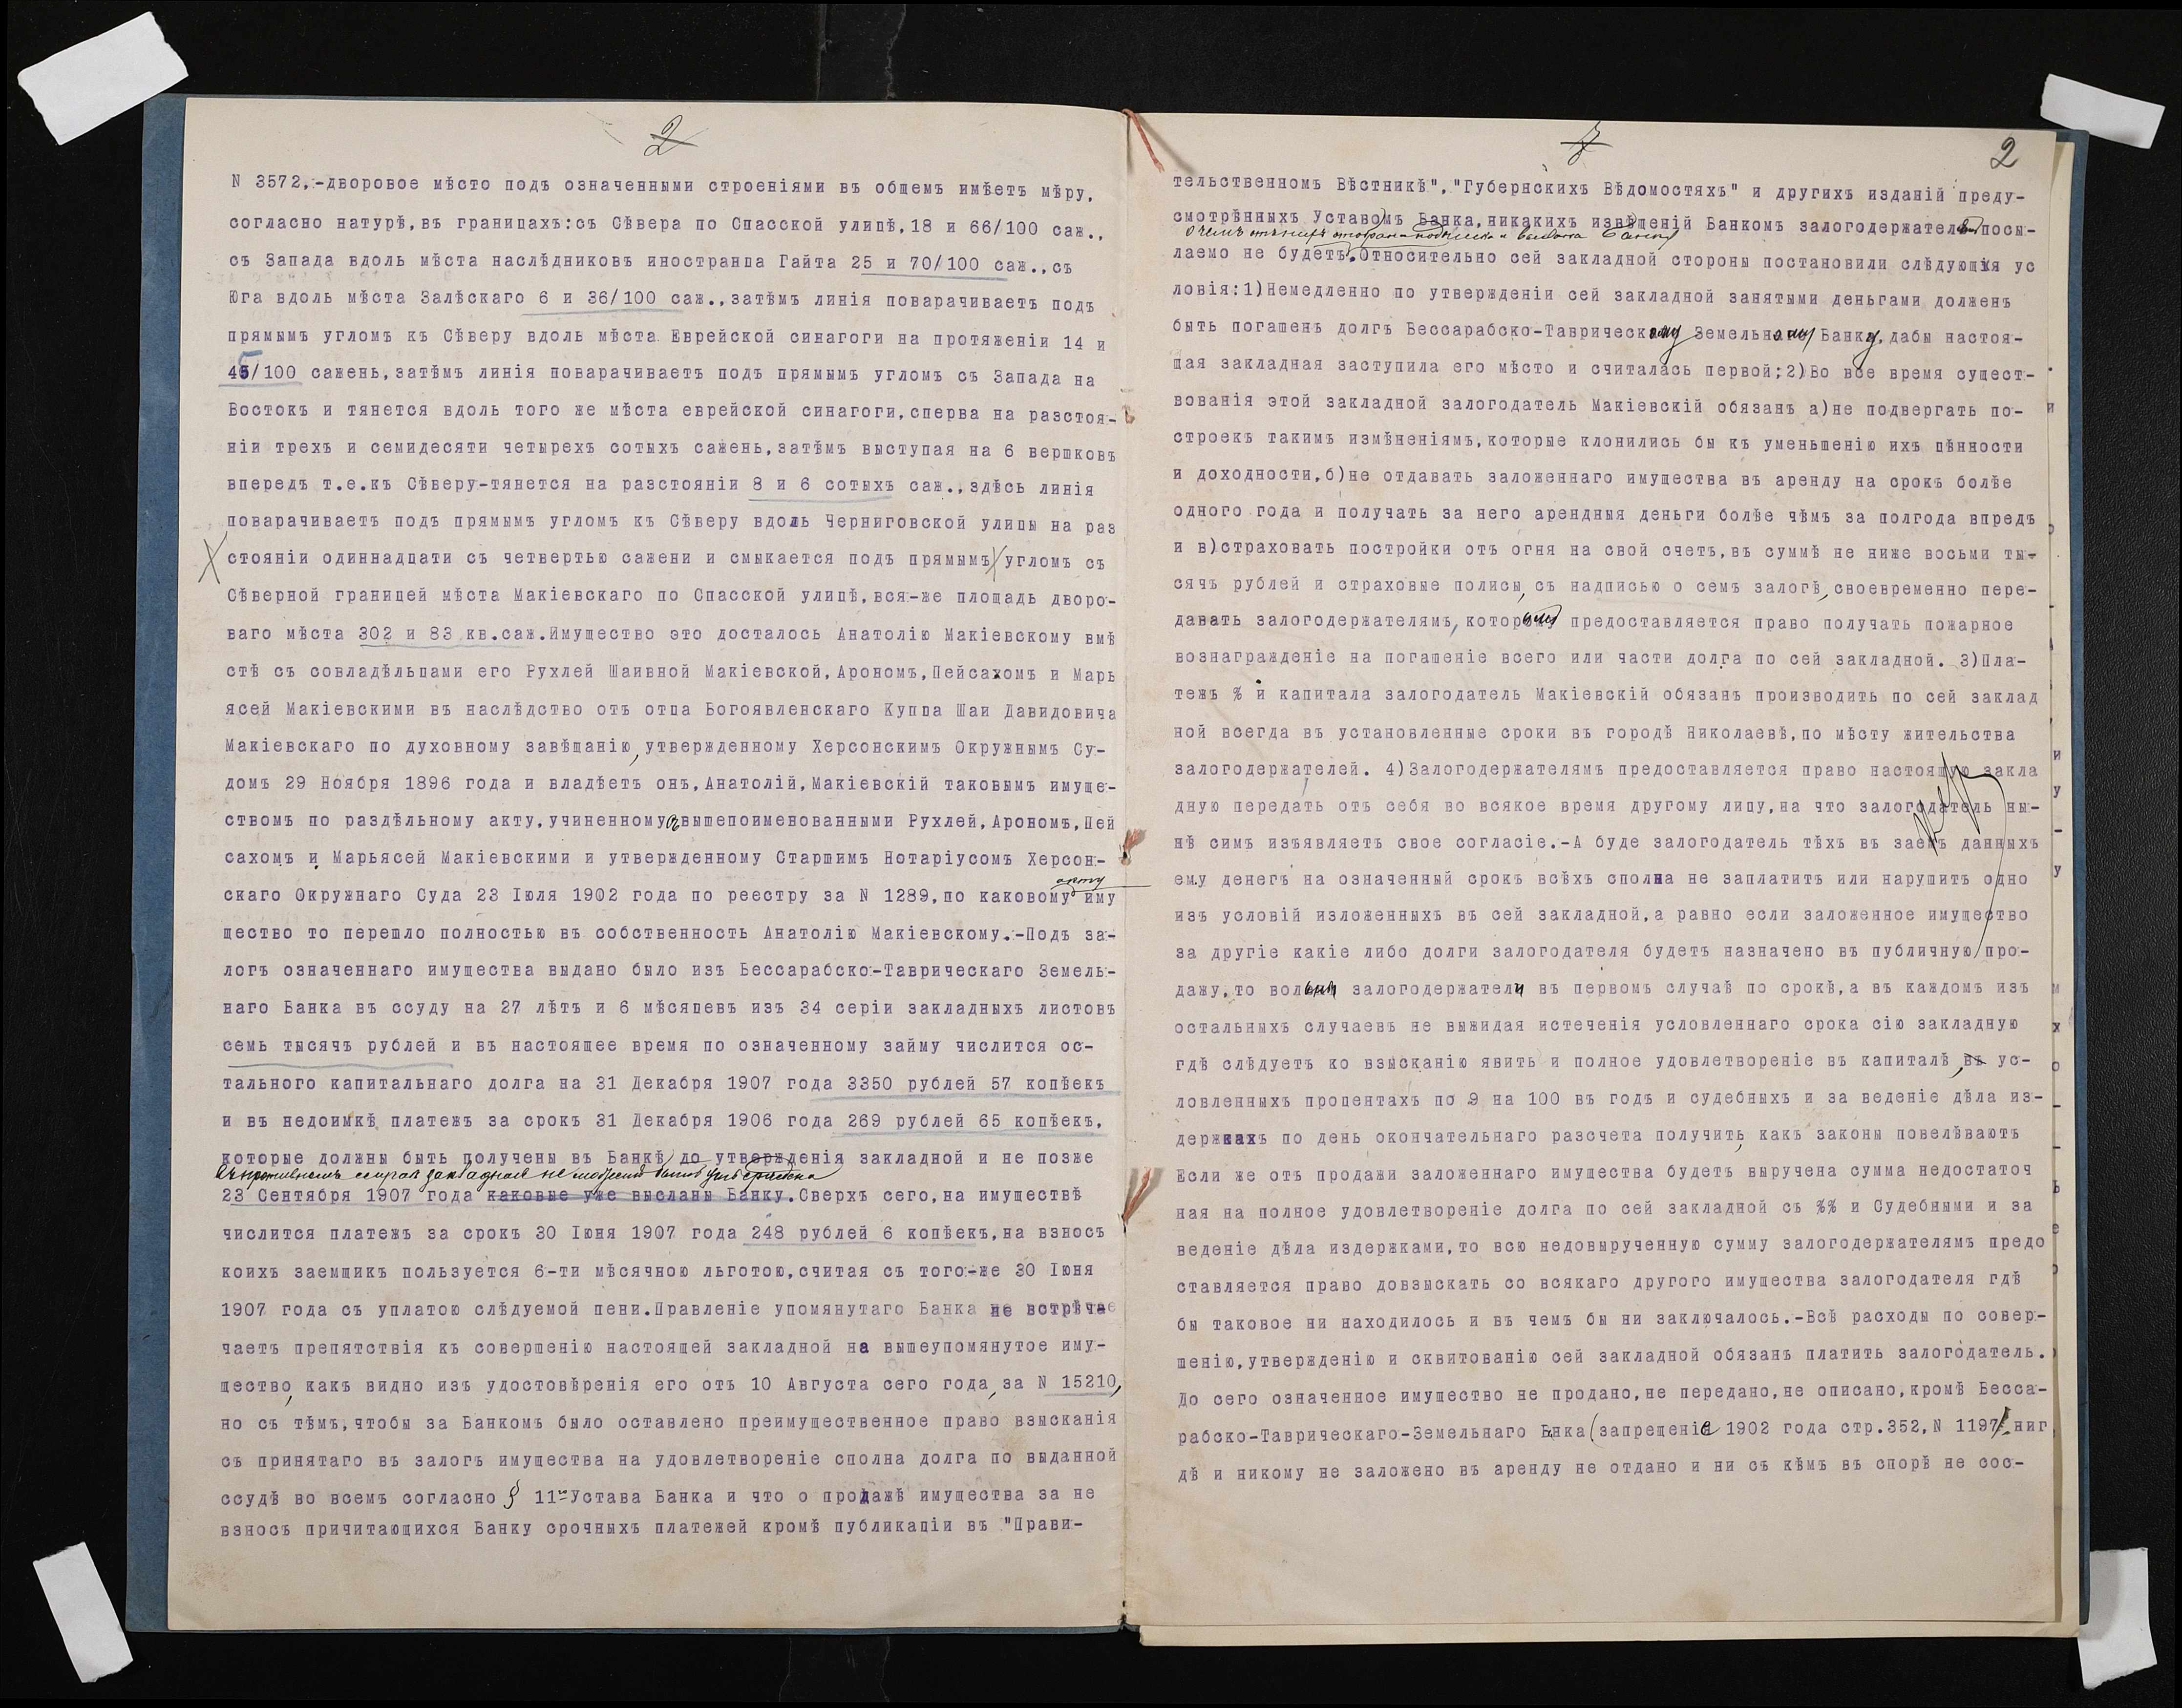 2
N 3572,-дворовое мѣсто подъ означенными строеніями въ общемъ имѣетъ мѣру,
согласно натурѣ,въ границахъ:съ Сѣвера по Спасской улицѣ,18 и 66/100 саж.,
съ Запада вдоль мѣста наслѣдниковъ иностранца Гайта 25 и 70/100 саж.,съ
Юга вдоль мѣста Залѣскаго 6 и 36/100 саж.,затѣмъ линія поварачиваетъ подъ
прямымъ угломъ къ Сѣверу вдоль мѣста Еврейской синагоги на протяженіи 14 и
45/100 сажень,затѣмъ линія поварачиваетъ подъ прямымъ угломъ съ Запада на
Востокъ и тянется вдоль того же мѣста еврейской синагоги,сперва на разстоя-
ніи трехъ и семидесяти четырехъ сотыхъ сажень,затѣмъ выступая на 6 вершковъ
впередъ т.е.къ Сѣверу-тянется на разстояніи 8 и 6 сотыхъ саж.,здѣсь линія
поварачиваетъ подъ прямымъ угломъ къ Сѣверу вдоль Черниговской улицы на раз
стояніи одиннадцати съ четвертью сажени и смыкается подъ прямымъ угломъ съ
Сѣверной границей мѣста Макіевскаго по Спасской улицѣ,вся-же площадь дворо-
ваго мѣста 302 и 83 кв.саж.Имущество это досталось Анатолію Макіевскому вмѣ
стѣ съ совладѣльцами его Рухлей Шаивной Макіевской,Арономъ,Пейсахомъ и Марь
ясей Макіевскими въ наслѣдство отъ отца Богоявленскаго Купца Шаи Давидовича
Макіевскаго по духовному завѣщанію,утвержденному Херсонскимъ Окружнымъ Су-
домъ 29 Ноября 1896 года и владѣетъ онъ,Анатолій,Макіевскій таковымъ имуще-
ствомъ по раздѣльному акту,учиненному съ вышепоименованными Рухлей,Арономъ,Пей
сахомъ и Марьясей Макіевскими и утвержденному Старшимъ Нотаріусомъ Херсон-
акту
скаго Окружнаго Суда 23 Іюля 1902 года по реестру за N 1289,по каковому иму
щество то перешло полностью въ собственность Анатолію Макіевскому.-Подъ за-
логъ означеннаго имущества выдано было изъ Бессарабско-Таврическаго Земель-
наго Банка въ ссуду на 27 лѣтъ и 6 мѣсяцевъ изъ 34 серіи закладныхъ листовъ
семь тысячъ рублей и въ настоящее время по означенному займу числится ос-
тального капитальнаго долга на 31 Декабря 1907 года 3350 рублей 57 копѣекъ
и въ недоимкѣ платежъ за срокъ 31 Декабря 1906 года 269 рублей 65 копѣекъ,
которые должны быть получены въ Банкѣ до утвержденія закладной и не позже
въ противномъ случаѣ закладная не можетъ быть утверждена
23 Сентября 1907 года каковые уже высланы Банку.Сверхъ сего,на имуществѣ
числится платежъ за срокъ 30 Іюня 1907 года 248 рублей 6 копѣекъ,на взносъ
коихъ заемщикъ пользуется 6-ти мѣсячною льготою,считая съ того-же 30 Іюня
1907 года съ уплатою слѣдуемой пени.Правленіе упомянутаго Банка не встрѣчае
чаетъ препятствія къ совершенію настоящей закладной на вышеупомянутое иму-
щество,какъ видно изъ удостовѣренія его отъ 10 Августа сего года,за N 15210,
но съ тѣмъ,чтобы за Банкомъ было оставлено преимущественное право взысканія
съ принятаго въ залогъ имущества на удовлетвореніе сполна долга по выданной
ссудѣ во всемъ согласно § 11 Устава Банка и что о продажѣ имущества за не
взносъ причитающихся Банку срочныхъ платежей кромѣ публикаціи въ "Прави-
3
2
тельственномъ Вѣстникѣ","Губернскихъ Вѣдомостяхъ" и другихъ изданій преду-
смотрѣнныхъ Уставомъ Банка,никакихъ извѣщеній Банкомъ залогодержателямъ посы-
о чемъ отъ нихъ отобрана подписка и выслана Банку
лаемо не будетъ.Относительно сей закладной стороны постановили слѣдующія ус
ловія:1)Немедленно по утвержденіи сей закладной занятыми деньгами долженъ
быть погашенъ долгъ Бессарабско-Таврическому Земельному Банку,дабы настоя-
щая закладная заступила его мѣсто и считалась первой;2)Во все время сущест-
вованія этой закладной залогодатель Макіевскій обязанъ а)не подвергать по-
строекъ такимъ измѣненіямъ,которые клонились бы къ уменьшенію ихъ цѣнности
и доходности,б)не отдавать заложеннаго имущества въ аренду на срокъ болѣе
одного года и получать за него арендныя деньги болѣе чѣмъ за полгода впредъ
и в)страховать постройки отъ огня на свой счетъ,въ суммѣ не ниже восьми ты-
сячъ рублей и страховые полисы,съ надписью о семъ залогѣ,своевременно пере-
давать залогодержателямъ,которымъ предоставляется право получать пожарное
вознагражденіе на погашеніе всего или части долга по сей закладной. 3)Пла-
тежъ % и капитала залогодатель Макіевскій обязанъ производить по сей заклад
ной всегда въ установленные сроки въ городѣ Николаевѣ,по мѣсту жительства
залогодержателей. 4)Залогодержателямъ предоставляется право настоящую закла
дную передать отъ себя во всякое время другому лицу,на что залогодатель ны-
нѣ симъ изъявляетъ свое согласіе.-А буде залогодатель тѣхъ въ заемъ данныхъ
ему денегъ на означенный срокъ всѣхъ сполна не заплатитъ или нарушитъ одно
изъ условій изложенныхъ въ сей закладной,а равно если заложенное имущество
за другіе какіе либо долги залогодателя будетъ назначено въ публичную про-
дажу,то вольны залогодержатели въ первомъ случаѣ по срокѣ,а въ каждомъ изъ
остальныхъ случаевъ не выжидая истеченія условленнаго срока сію закладную
гдѣ слѣдуетъ ко взысканію явить и полное удовлетвореніе въ капиталѣ,въ ус-
ловленныхъ процентахъ по 9 на 100 въ годъ и судебныхъ и за веденіе дѣла из-
держкахъ по день окончательнаго разсчета получить,какъ законы повелѣваютъ
Если же отъ продажи заложеннаго имущества будетъ выручена сумма недостаточ
ная на полное удовлетвореніе долга по сей закладной съ %% и Судебными и за
веденіе дѣла издержками,то всю недовырученную сумму залогодержателямъ предо
ставляется право довзыскать со всякаго другого имущества залогодателя гдѣ
бы таковое ни находилось и въ чемъ бы ни заключалось.-Всѣ расходы по совер-
шенію,утвержденію и сквитованію сей закладной обязанъ платить залогодатель.
До сего означенное имущество не продано,не передано,не описано,кромѣ Бесса-
рабско-Таврическаго-Земельнаго Бнка(запрещеніе 1902 года стр.352,N 1197),ниг
дѣ и никому не заложено въ аренду не отдано и ни съ кѣмъ въ спорѣ не сос-